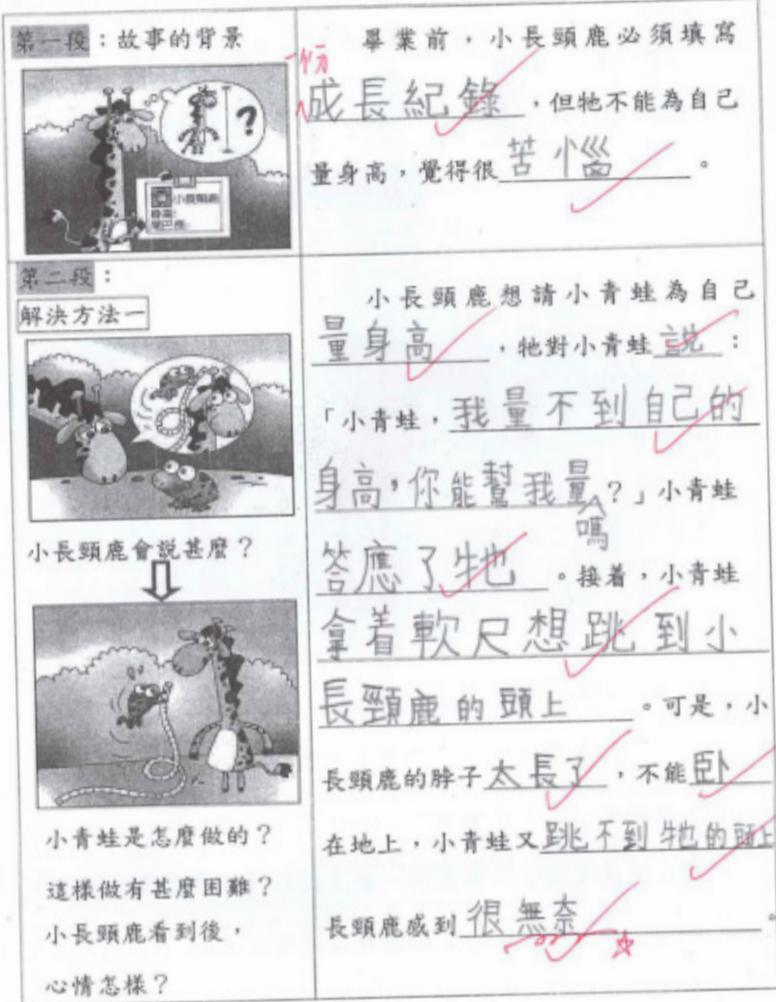 第一段：故事的背景
?
小長頸鹿
身高：
畢業前，小長頸鹿必須填寫
一份
成長紀錄，但牠不能為自己
量身高，覺得很苦惱。
第二段：
解決方法一
小長頸鹿會說甚麼？
小青蛙是怎麼做的？
這樣做有甚麼困難？
小長頸鹿看到後，
心情怎樣？
小長頸鹿想請小青蛙為自己
量身高，牠對小青蛙說：
「小青蛙，我量不到自己的
身高，你能幫我量嗎？」小青蛙
答應了牠。接着，小青蛙
拿着軟尺想跳到小
長頸鹿的頭上。可是，小
長頸鹿的脖子太長了，不能卧
在地上，小青蛙又跳不到牠的頭上
長頸鹿感到很無奈。